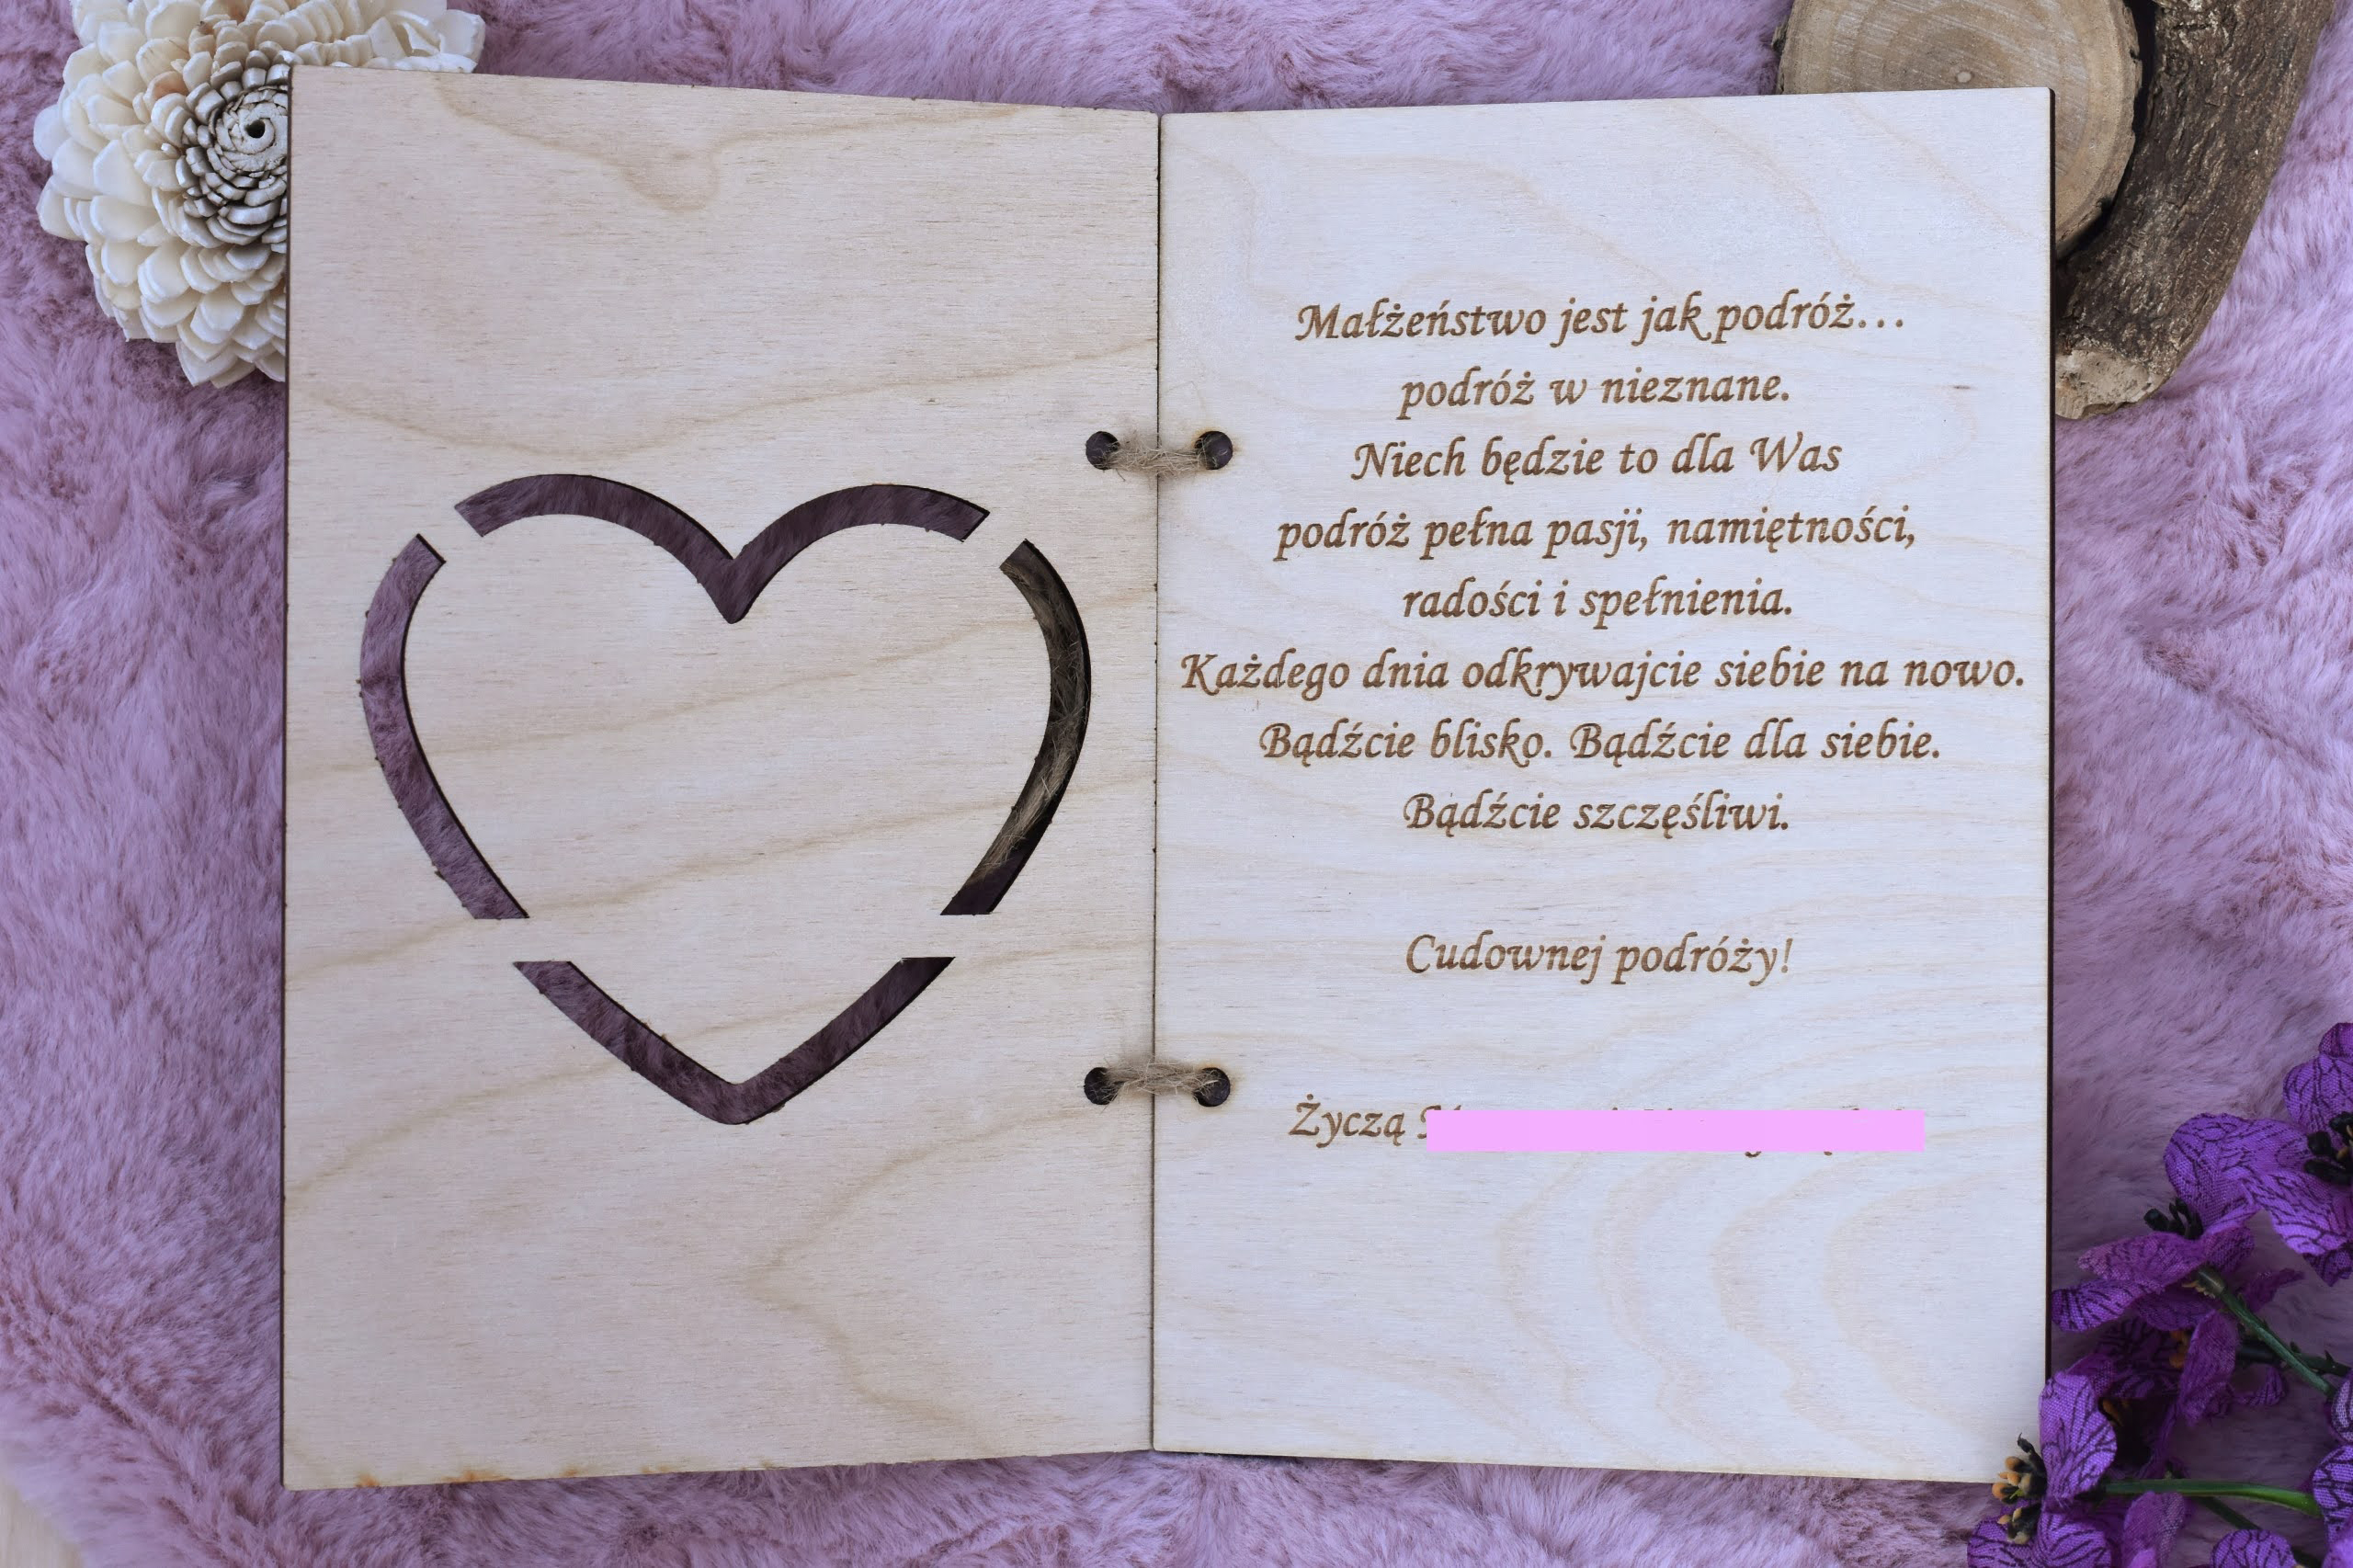 Małżeństwo jest jak podróż...
podróż w nieznane.
Niech będzie to dla Was
podróż pełna pasji, namiętności,
radości i spełnienia.
Każdego dnia odkrywajcie siebie na nowo.
Bądźcie blisko. Bądźcie dla siebie.
Bądźcie szczęśliwi.
Cudownej podróży!
Życzą